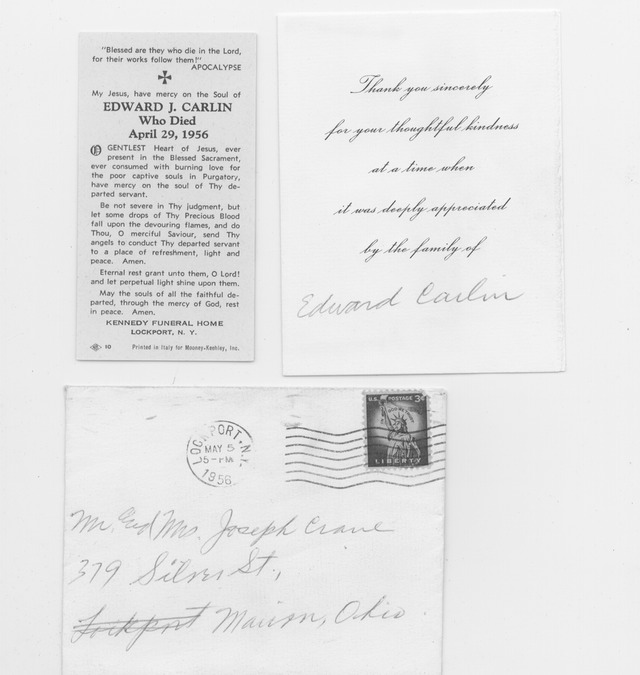 "Blessed are they who die in the Lord,
for their works follow them!"
APOCALYPSE
My Jesus, have mercy on the Soul of
EDWARD J. CARLIN
Who Died
April 29, 1956
O GENTLEST Heart of Jesus, ever
present in the Blessed Sacrament,
ever consumed with burning love for
the poor captive souls in Purgatory,
have mercy on the soul of Thy de-
parted servant.
Be not severe in Thy judgment, but
let some drops of Thy Precious Blood
fall upon the devouring flames, and do
Thou, O merciful Saviour, send Thy
angels to conduct Thy departed servant
to a place of refreshment, light and
peace. Amen.
Eternal rest grant unto them, O Lord!
and let perpetual light shine upon them.
May the souls of all the faithful de-
parted, through the mercy of God, rest
in peace. Amen.
KENNEDY FUNERAL HOME
LOCKPORT, N. Y.
10 Printed in Italy for Mouney-Keohley, Inc.
Thank you sincerely
for your thoughtful kindness
at a time when
it was deeply appreciated
by the family of
Edward Carlin
LOCKPORT, N.Y.
MAY 5
5-PM
1956
U.S. POSTAGE 3¢
LIBERTY
Mr. and Mrs. Joseph Crane
379 Silver St.,
Lockport Marion, Ohio.